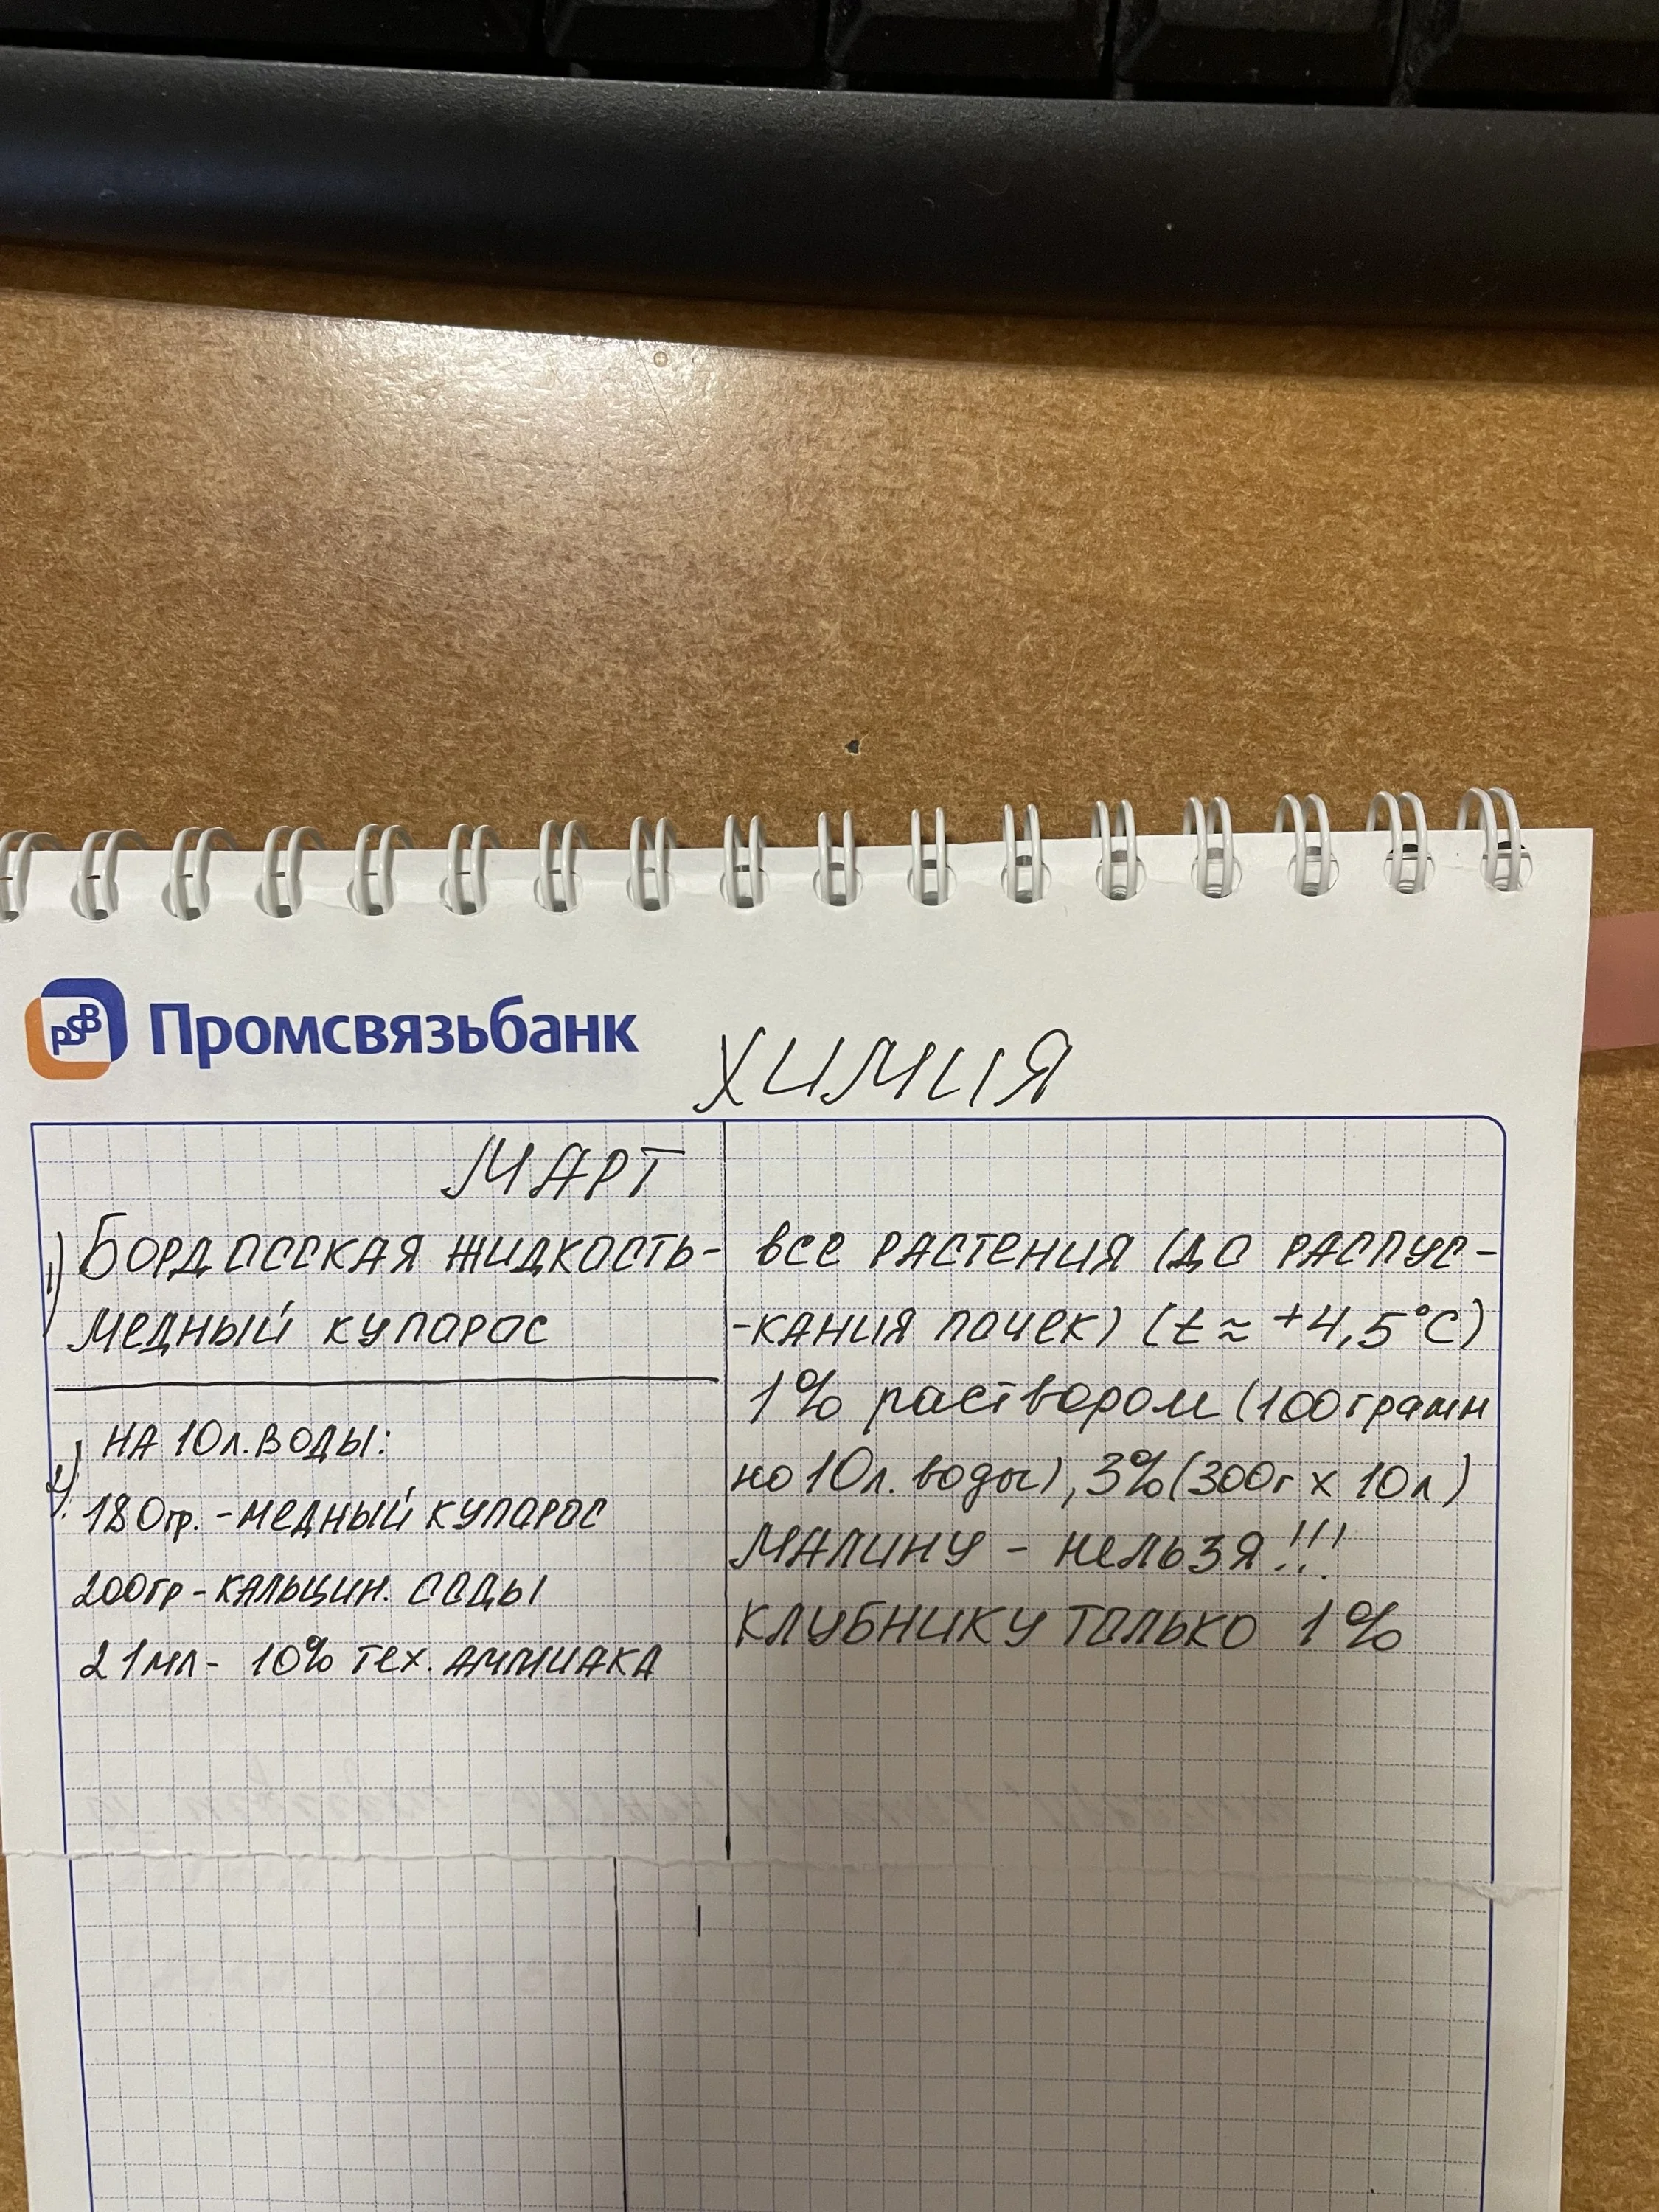 PSB Промсвязьбанк
ХИМИЯ
МАРТ
1) БОРДОССКАЯ ЖИДКОСТЬ-
МЕДНЫЙ КУПОРОС
НА 10л. ВОДЫ:
2)
180гр. - МЕДНЫЙ КУПОРОС
200гр - КАЛЬЦИН. СОДЫ
21мл - 10% ТЕХ. АММИАКА
ВСЕ РАСТЕНИЯ (ДО РАСПУС-
-КАНИЯ ПОЧЕК) (t ≈ +4,5°C)
1% раствором (100грамм
на 10л. воды), 3% (300г х 10л)
МАЛИНУ - НЕЛЬЗЯ!!!
КЛУБНИКУ ТОЛЬКО 1%